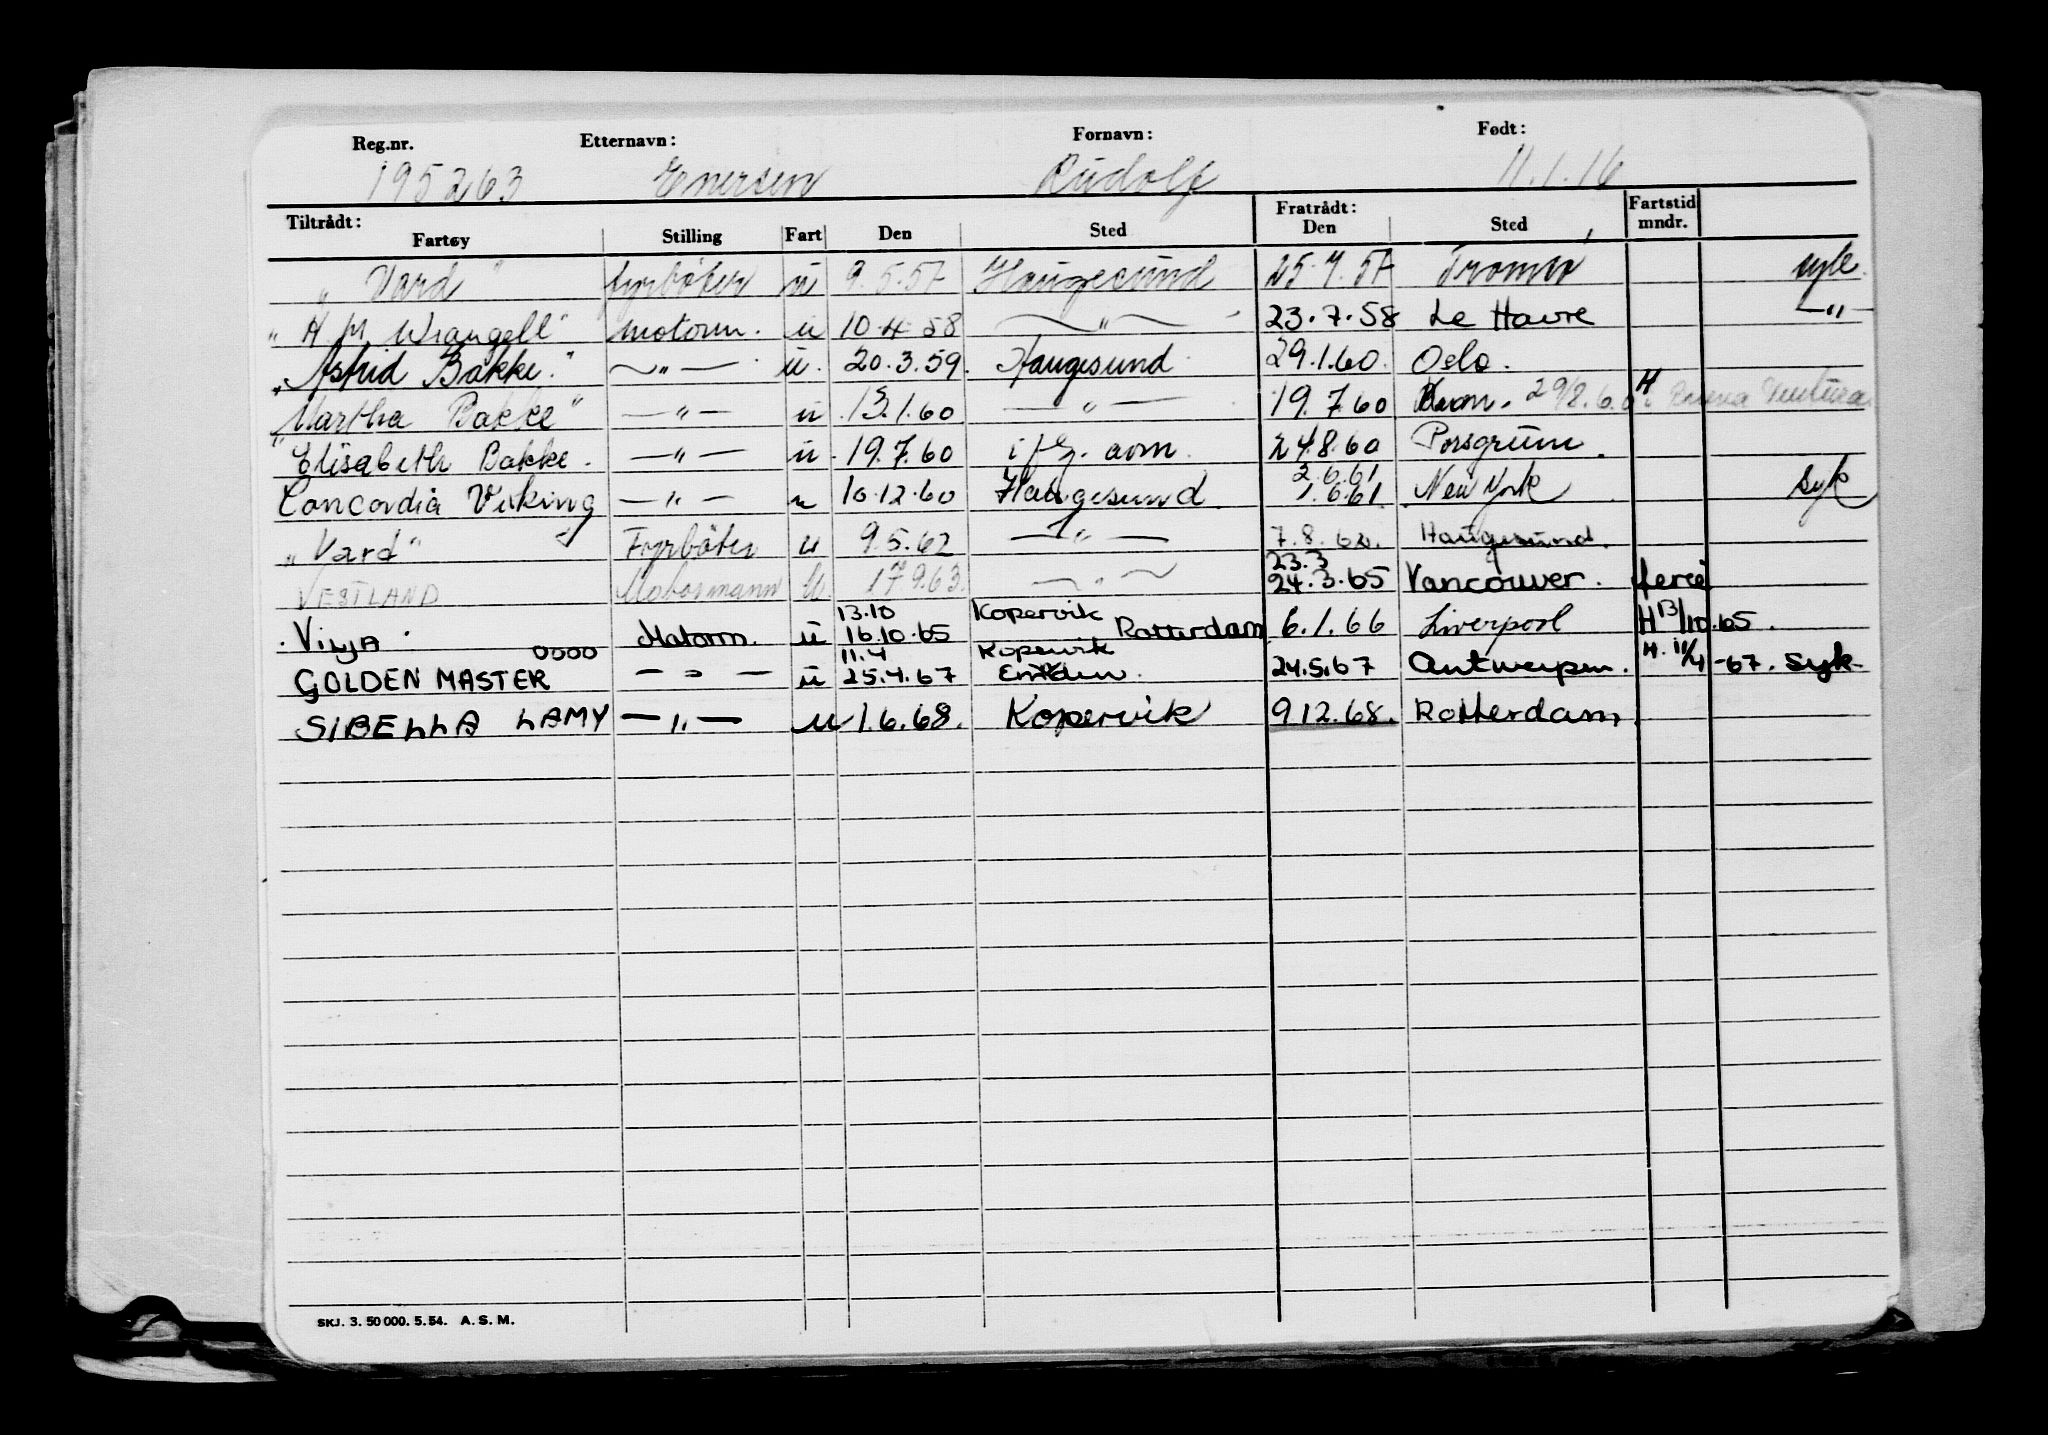 Reg.nr. Etternavn: Fornavn: Født:
195263 Enersen Rudolf 11.1.16
Tiltrådt: Fratrådt: Fartstid
Fartøy Stilling Fart Den Sted Den Sted mndr.
"Vard" fyrbøter u 9.5.57 Haugesund 25.7.57 Tromsø
"H M Wrangell" motorm. u 10.4.58 —"— 23.7.58 Le Havre —"—
"Astrid Bakke." —"— u. 20.3.59. Haugesund 29.1.60. Oslo.
"Martha Bakke" —"— u 13.1.60 —"— 19.7.60 29/8.60 H. Ventura
"Elisabeth Bakke. —"— u. 19.7.60 aom. 24.8.60 Porsgrunn.
2.6.61
Concordia Viking —"— u 10.12.60 Haugesund. 1.6.61. New York syk
"Vard" Fyrbøter u 9.5.62 —"— 7.8.62. Haugesund.
23.3
VESTLAND Motormann U. 17.9.63. —"— 24.3.65 Vancouver. ferie
13.10 Kopervik
Vilja Motorm. u 16.10.65 Rotterdam 6.1.66 Liverpool H 13/10.65.
0000 11.4 Kopervik
GOLDEN MASTER —"— u 25.4.67 Emden. 24.5.67 Antwerpen. H. 11/4 -67. Syk
SIBELLA LAMY —"— u 1.6.68. Kopervik 9.12.68. Rotterdam
SKJ. 3. 50 000. 5. 54. A. S. M.